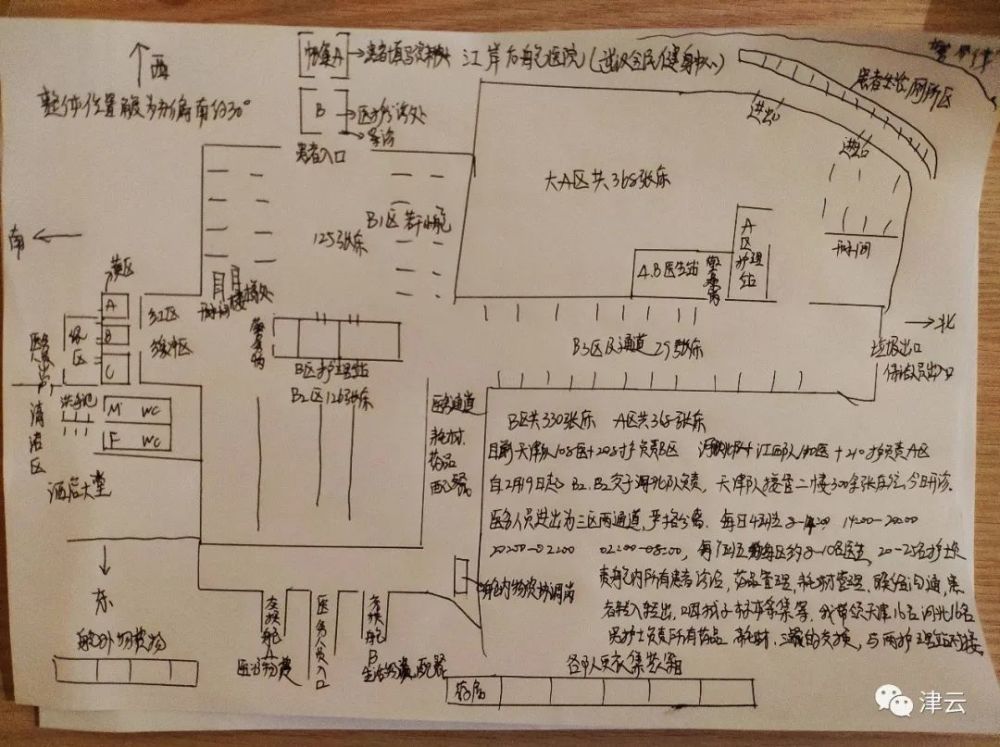 帐篷A→患者填写资料处
江岸方舱医院(武汉全民健身中心)
警戒线
西
整体位置服务部偏南约30°
B→医护诊处
患者入口
患者如厕、厕所区
进出
进出
大A区共368张床
B1区
125张床
A区护理站
A.B医生站
南
黄区
A
B
C
红区
缓冲区
绿区
清洁区
洗手池
M WC
F WC
酒店大堂
B区护理站
B2区126张床
B3区及通道 29张床
→北
垃圾出口
保洁人员出口
医务通道
耗材
药品
配餐
B区共330张床 A区共368张床
目前天津队108医+208护负责B区
江西队140医+210护负责A区
自2月9日起 B2.B3交于河北队负责,天津队接管二楼300余张床位,今日开诊。
医务人员进出为三区两通道,严格分离.每日4班
14:00—20:00
20:00—02:00 02:00—08:00,
8—10名医生,20—25名护士负
责舱内所有患者诊治,药品管理,耗材管理,
患
者转入转出,咽拭子标本采集等,我带领天津16名河北16名
男护士负责所有药品、耗材、三餐的交换,与两护理站对接
舱内物资协调岗
东
舱外物资
交换舱A
医疗物资
医务人员入口
交换舱B
生活物资,配餐
各队更衣集装箱
药房
津云